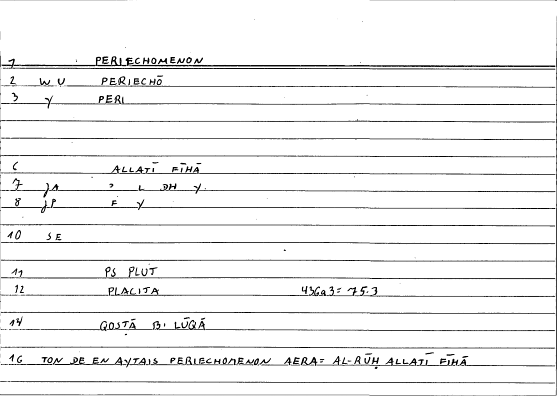 1 PERIECHOMENON
2 WU PERIECHŌ
3 Y PERI
6 ALLATĪ FĪHĀ
7 JA ʾ L DH Y
8 JP F Y
10 SE
11 PS PLUT
12 PLACITA 436a3= 75.3
14 QOSṬĀ B. LŪQĀ
16 TON DE EN AYTAIS PERIECHOMENON AERA= AL-RŪḤ ALLATĪ FĪHĀ